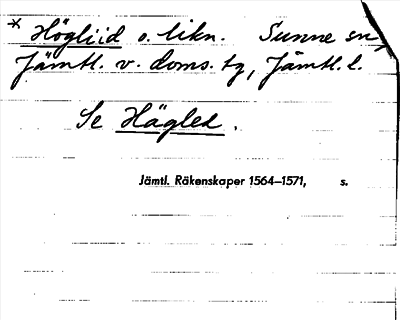 * Högliid o. likn. Sunne sn,
Jämtl. v. doms. tg, Jämtl. l.
Se Hägled.
Jämtl. Räkenskaper 1564–1571, s.